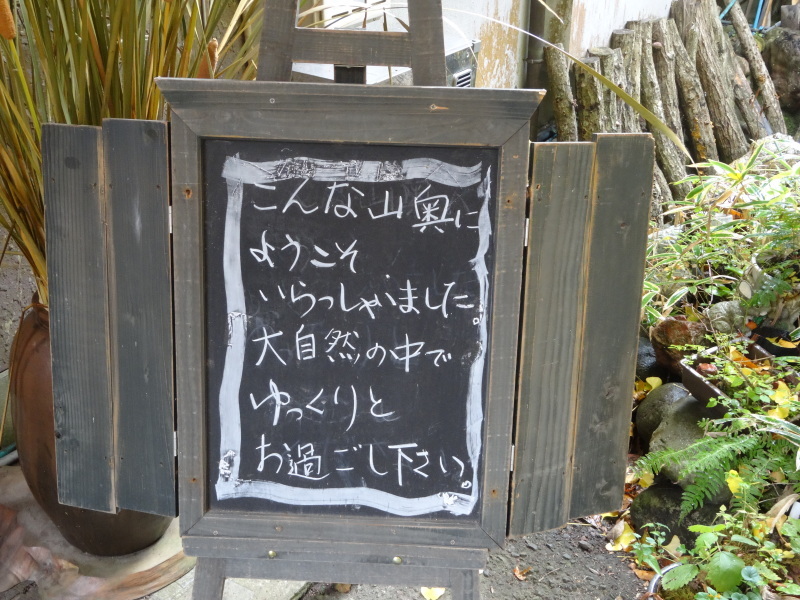 こんな山奥に
ようこそ
いらっしゃいました。
大自然の中で
ゆっくりと
お過ごし下さい。